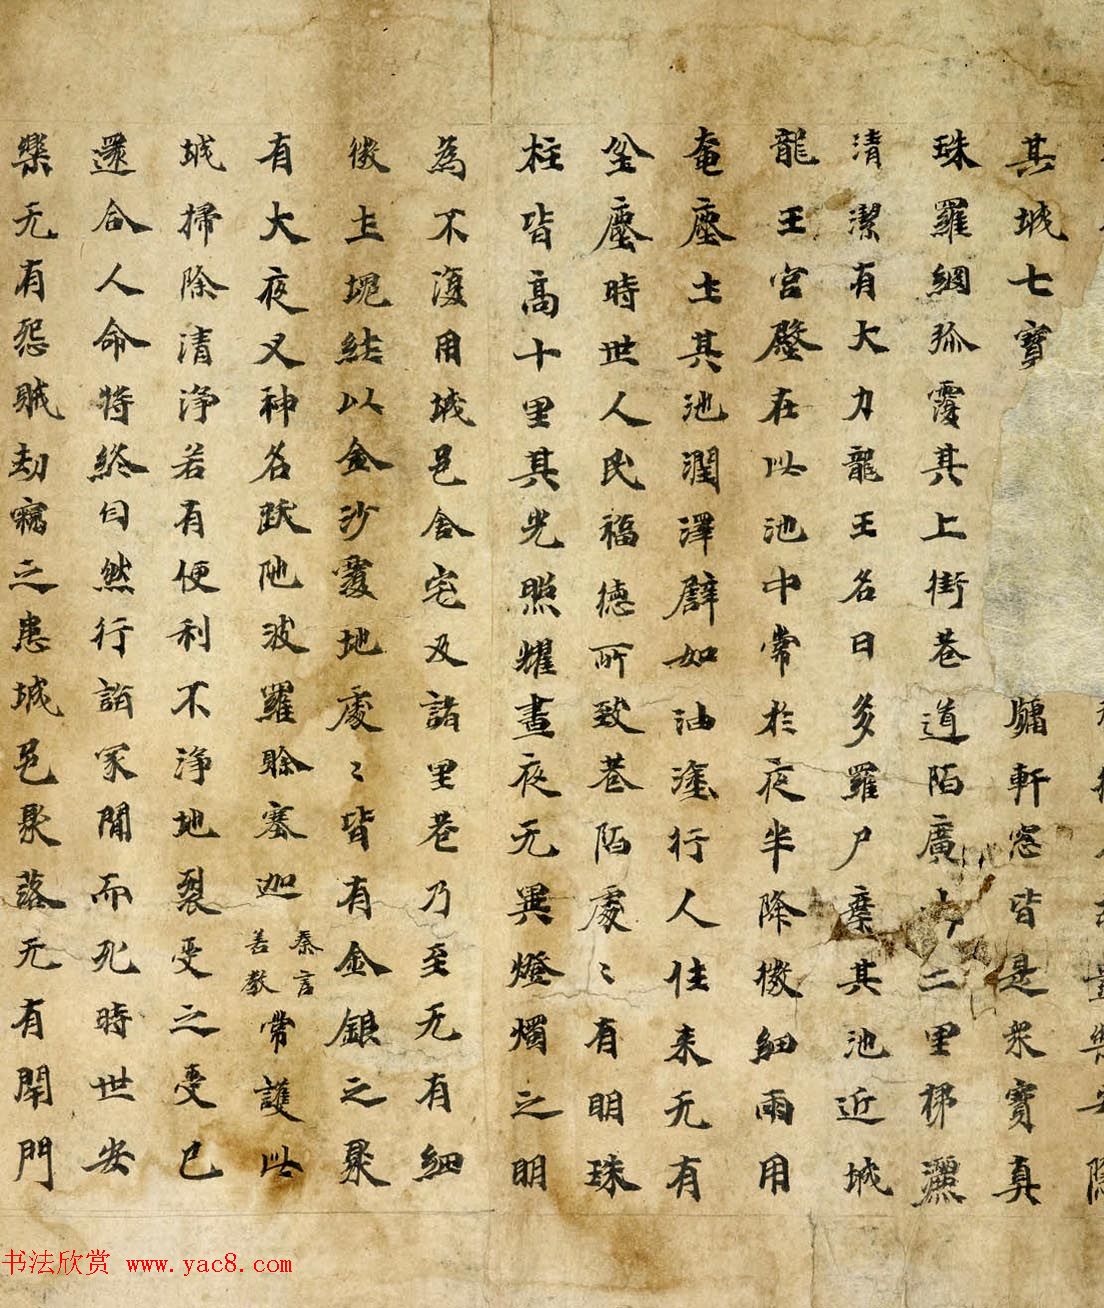 其城七寶 牖軒窓皆是衆寶真
珠羅網弥覆其上街巷道陌廣十二里掃灑
清潔有大力龍王名曰多羅尸棄其池近城
龍王宮殿在此池中常於夜半降微細雨用
奄塵土其池潤澤譬如油塗行人往来无有
坌塵時世人民福德所致巷陌處〻有明珠
柱皆高十里其光照耀晝夜无異燈燭之明
為不復用城邑舍宅及諸里巷乃至无有細
微土塊純以金沙覆地處〻皆有金銀之聚
有大夜叉神名跋陁波羅賒塞迦秦言善教常護此
城掃除清淨若有便利不淨地裂受之受已
還合人命将終自然行詣冢間而死時世安
樂无有怨賊劫竊之患城邑聚落无有閇門
书法欣赏 www.yac8.com